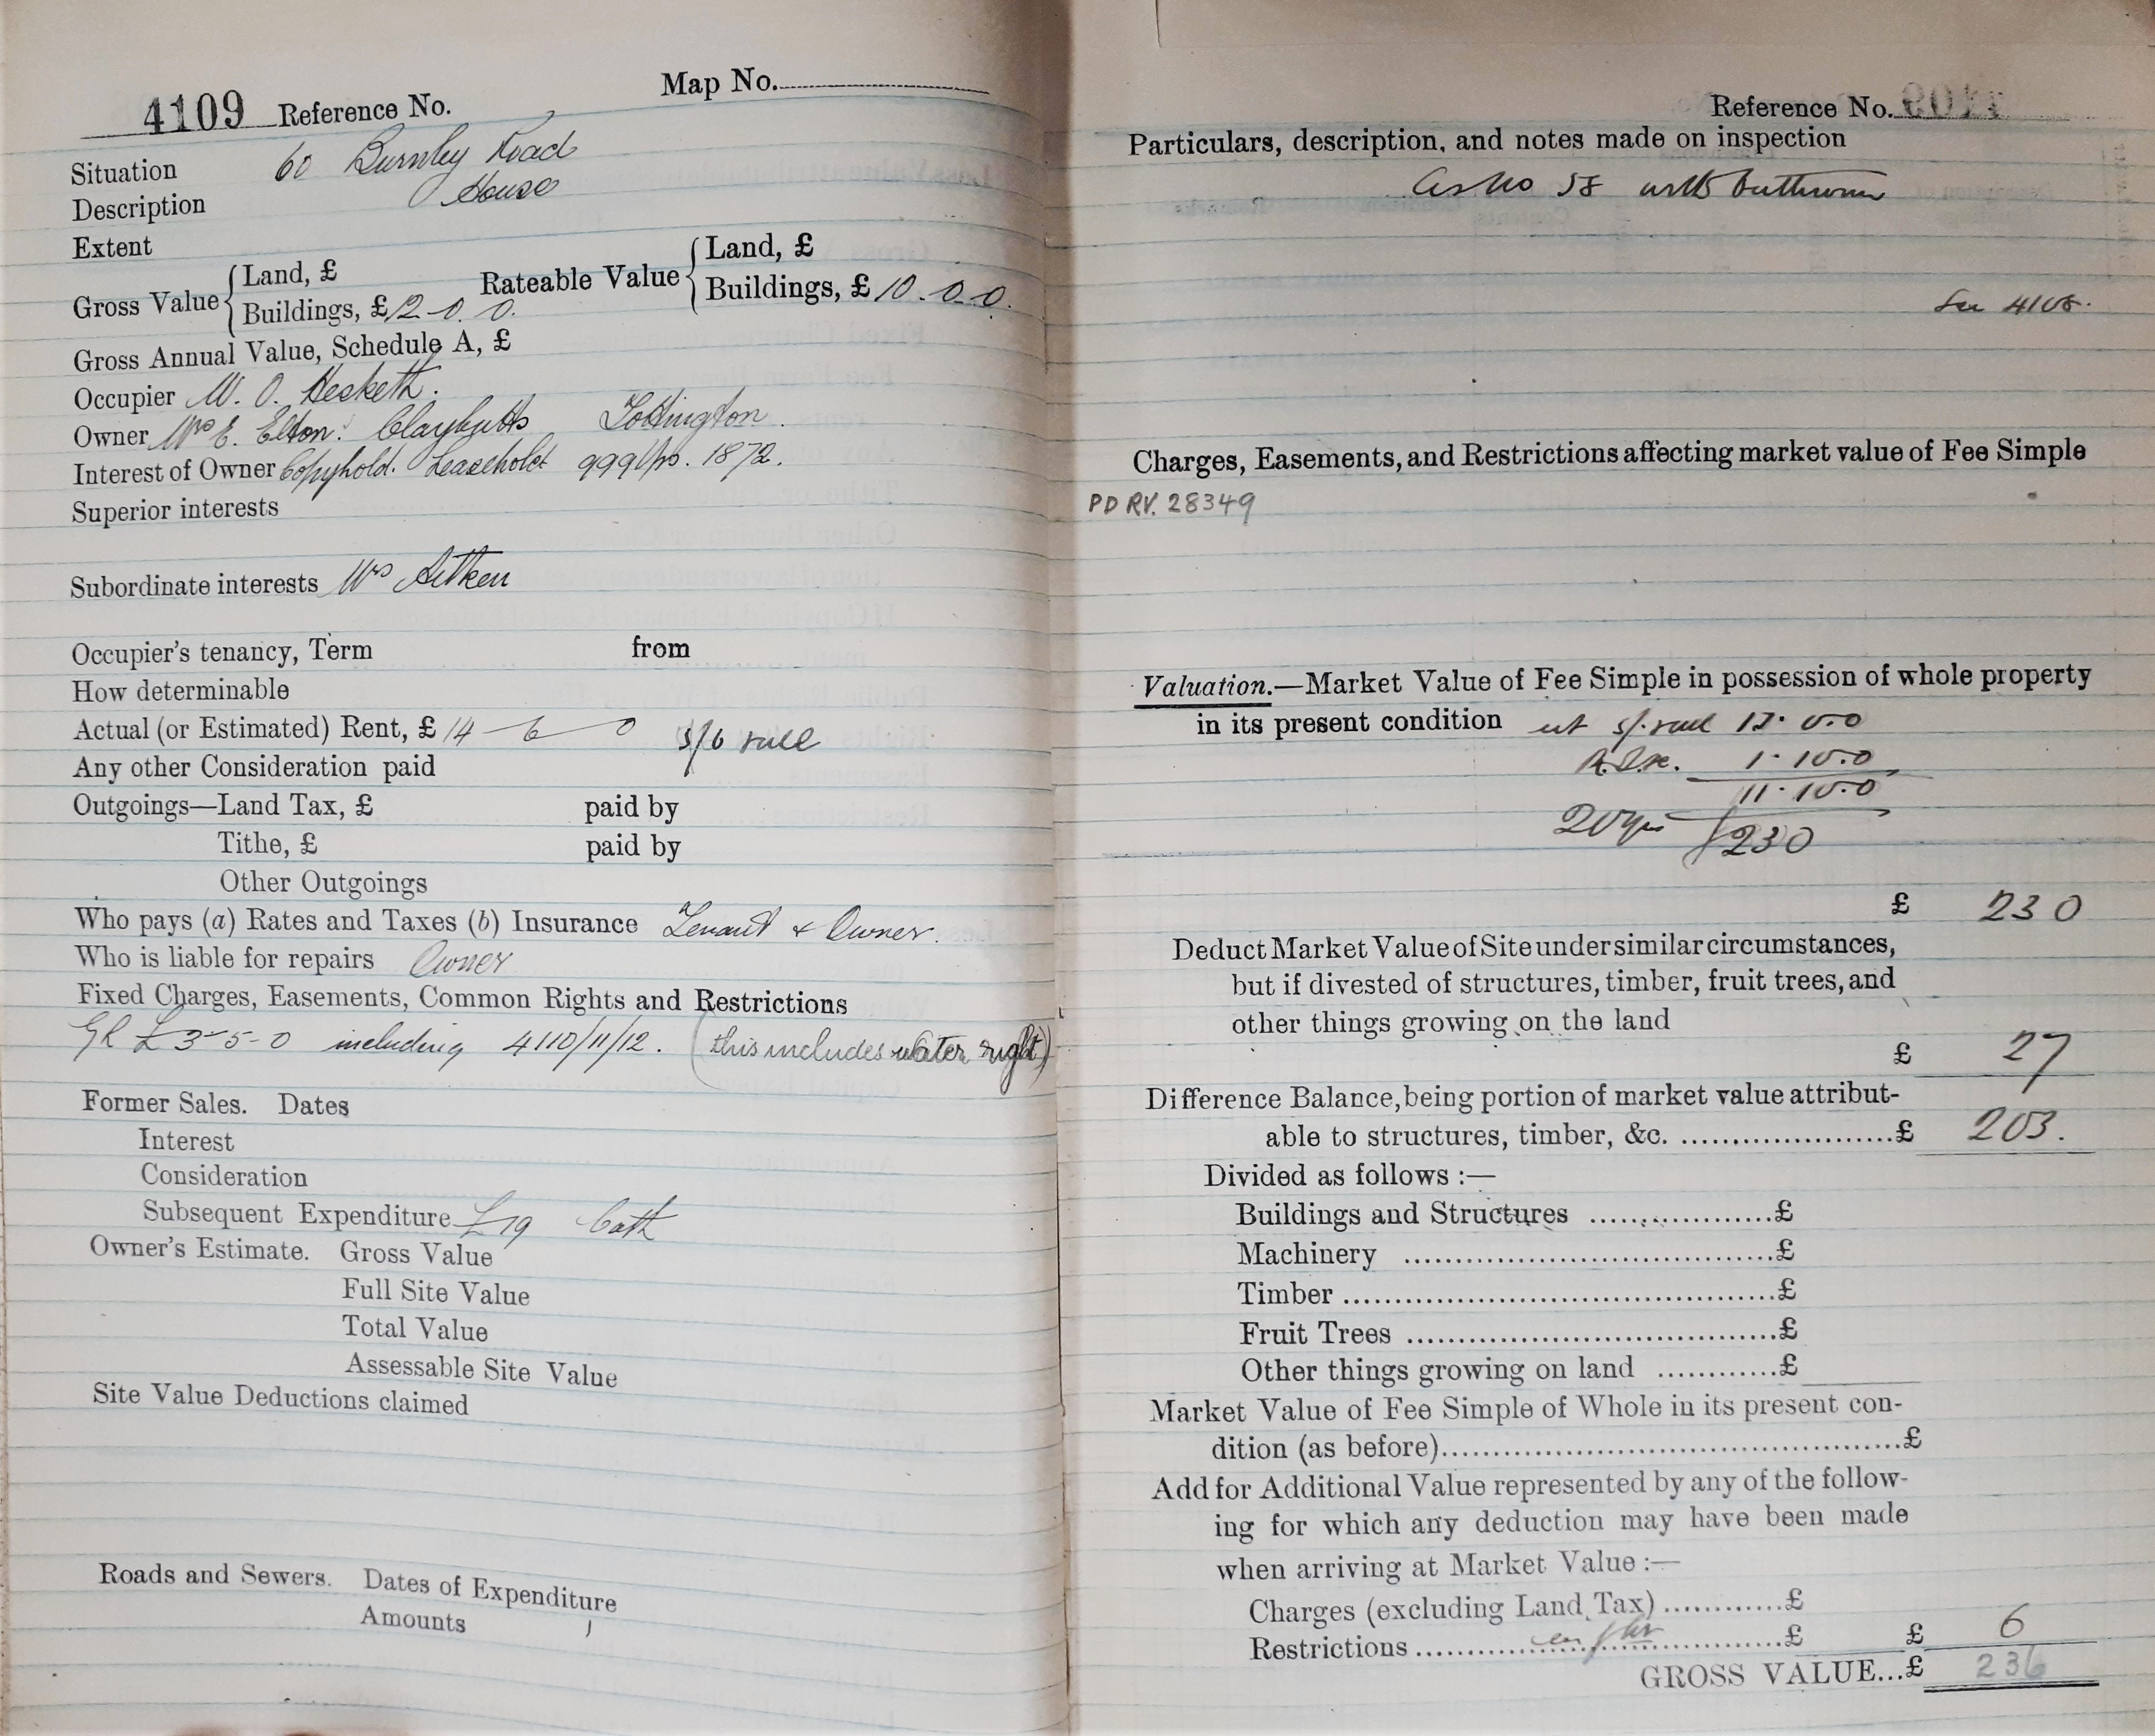 4109 Reference No.
Map No.
Situation 60 Burnley Road
Description House
Extent
Gross Value { Land, £
Buildings, £ 12-0.0.
Rateable Value { Land, £
Buildings, £ 10.0.0.
Gross Annual Value, Schedule A, £
Occupier W. O. Hesketh.
Owner Mrs E. Elton. Claybutts Tottington
Interest of Owner Copyhold. Leasehold 999 yrs. 1872.
Superior interests
Subordinate interests Mrs Aitken
Occupier's tenancy, Term from
How determinable
Actual (or Estimated) Rent, £ 14-6-0 5/6
Any other Consideration paid
Outgoings—Land Tax, £ paid by
Tithe, £ paid by
Other Outgoings
Who pays (a) Rates and Taxes (b) Insurance Tenant & Owner.
Who is liable for repairs Owner
Fixed Charges, Easements, Common Rights and Restrictions
GR £3-5-0 including 4110/11/12. (this includes water right)
Former Sales. Dates
Interest
Consideration
Subsequent Expenditure £19 bath
Owner's Estimate. Gross Value
Full Site Value
Total Value
Assessable Site Value
Site Value Deductions claimed
Roads and Sewers. Dates of Expenditure
Amounts
Reference No.
Particulars, description, and notes made on inspection
as No 58 with bathroom
See 4108.
Charges, Easements, and Restrictions affecting market value of Fee Simple
PD RV. 28349
Valuation.—Market Value of Fee Simple in possession of whole property
in its present condition
1.10.0
11.10.0
20 yrs £230
£ 230
Deduct Market Value of Site under similar circumstances,
but if divested of structures, timber, fruit trees, and
other things growing on the land
£ 27
Difference Balance, being portion of market value attribut-
able to structures, timber, &c. ......................£ 203.
Divided as follows :—
Buildings and Structures ....................£
Machinery ........................................£
Timber ..............................................£
Fruit Trees ........................................£
Other things growing on land ............£
Market Value of Fee Simple of Whole in its present con-
dition (as before)..................................................£
Add for Additional Value represented by any of the follow-
ing for which any deduction may have been made
when arriving at Market Value :—
Charges (excluding Land Tax) ............£
Restrictions ........................................£ £ 6
GROSS VALUE...£ 236